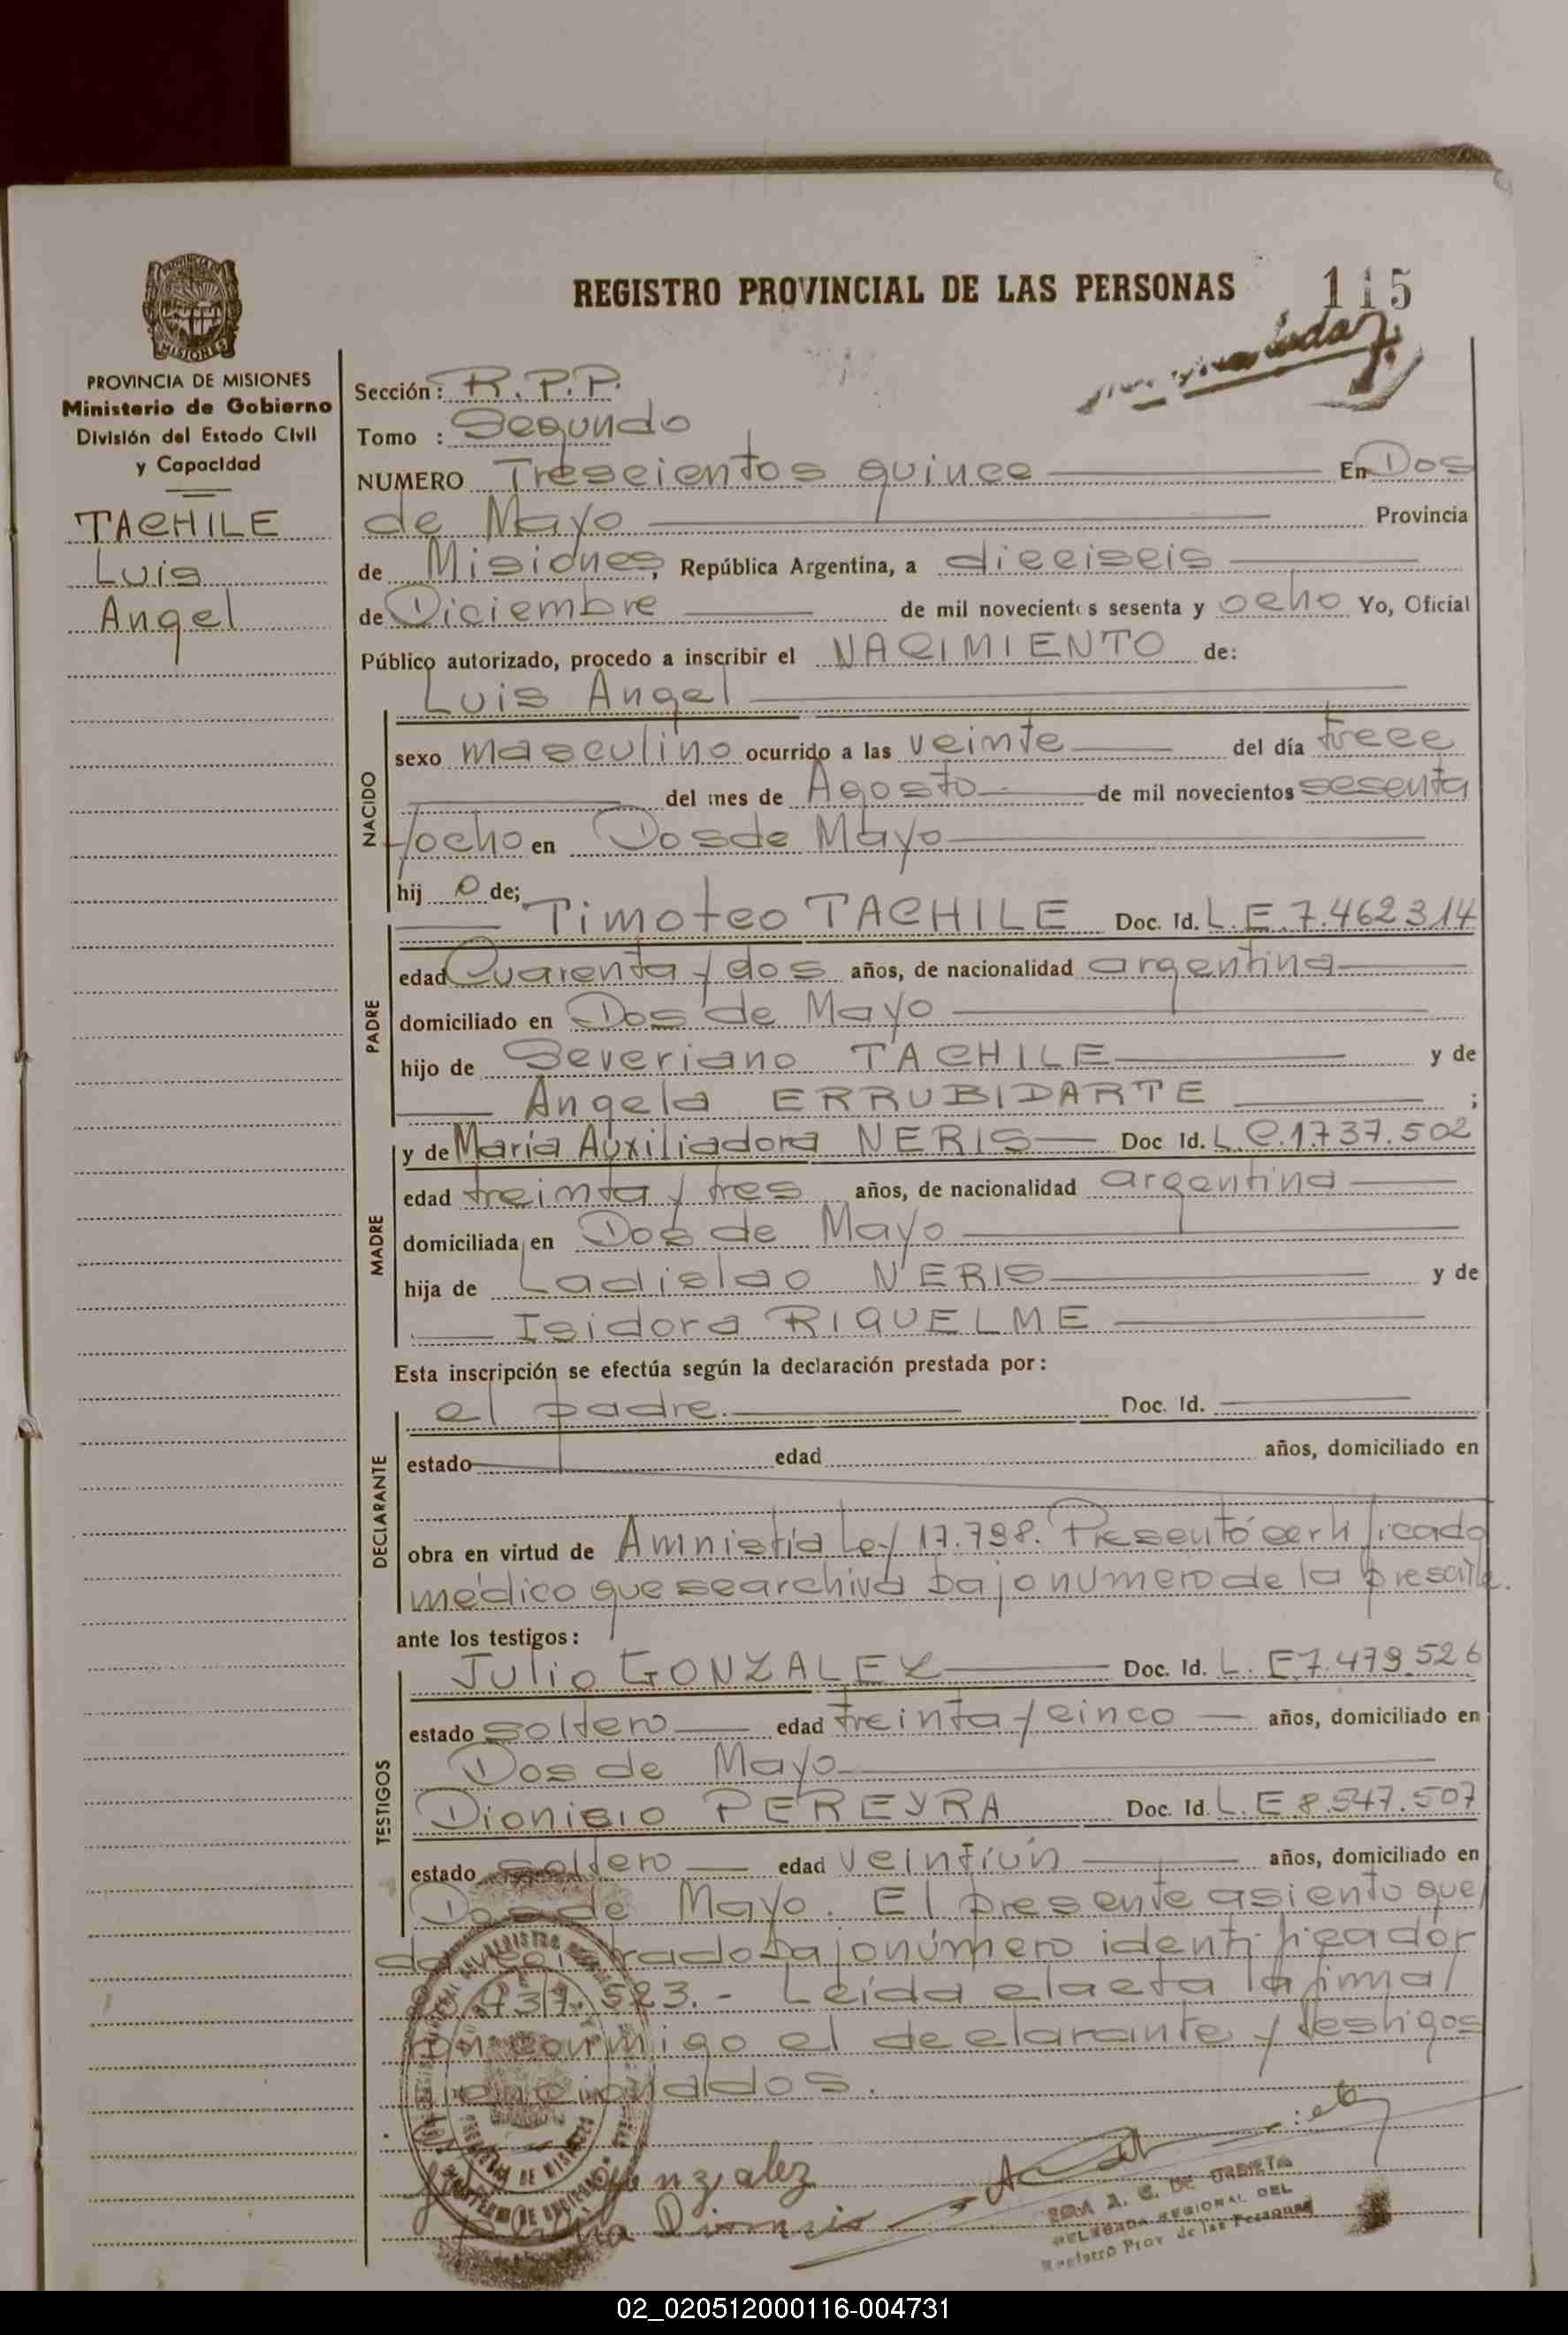 REGISTRO PROVINCIAL DE LAS PERSONAS 115
PROVINCIA DE
MISIONES
PROVINCIA DE MISIONES
Ministerio de Gobierno
División del Estado Civil
y Capacidad
TACHILE
Luis
Angel
Sección: R.P.P.
Tomo : Segundo
NUMERO Trescientos quince En Dos
de Mayo Provincia
de Misiones, República Argentina, a dieciseis
de Diciembre de mil novecientos sesenta y ocho Yo, Oficial
Público autorizado, procedo a inscribir el NACIMIENTO de:
Luis Angel
NACIDO
sexo masculino ocurrido a las veinte del día trece
del mes de Agosto de mil novecientos sesenta
y ocho en Dos de Mayo
hij o de;
PADRE
Timoteo TACHILE Doc. Id. L.E.7.462314
edad Cuarenta y dos años, de nacionalidad argentina
domiciliado en Dos de Mayo
hijo de Severiano TACHILE y de
Angela ERRUBIDARTE ;
MADRE
y de María Auxiliadora NERIS Doc Id. L.C.1.737.502
edad treinta y tres años, de nacionalidad argentina
domiciliada en Dos de Mayo
hija de Ladislao NERIS y de
Isidora RIQUELME
Esta inscripción se efectúa según la declaración prestada por:
DECLARANTE
el padre. Doc. Id.
estado edad años, domiciliado en
obra en virtud de Amnistía Ley 17.798. Presentó certificado
médico que se archiva bajo numero de la presente.
ante los testigos:
TESTIGOS
Julio GONZALEZ Doc. Id. L.E.7.479.526
estado soltero edad treinta y cinco años, domiciliado en
Dos de Mayo
Dionisio PEREYRA Doc. Id. L.E 8.547.507
estado soltero edad veintiún años, domiciliado en
Dos de Mayo. El presente asiento que
da bajo número identificador
523.- Leída el acta la firman
conmigo el declarante y testigos
mencionados.
Gonzalez
Dionisio
A. C. DE URBIETA
DELEGADA REGIONAL DEL
Registro Prov. de las Personas
02_020512000116-004731